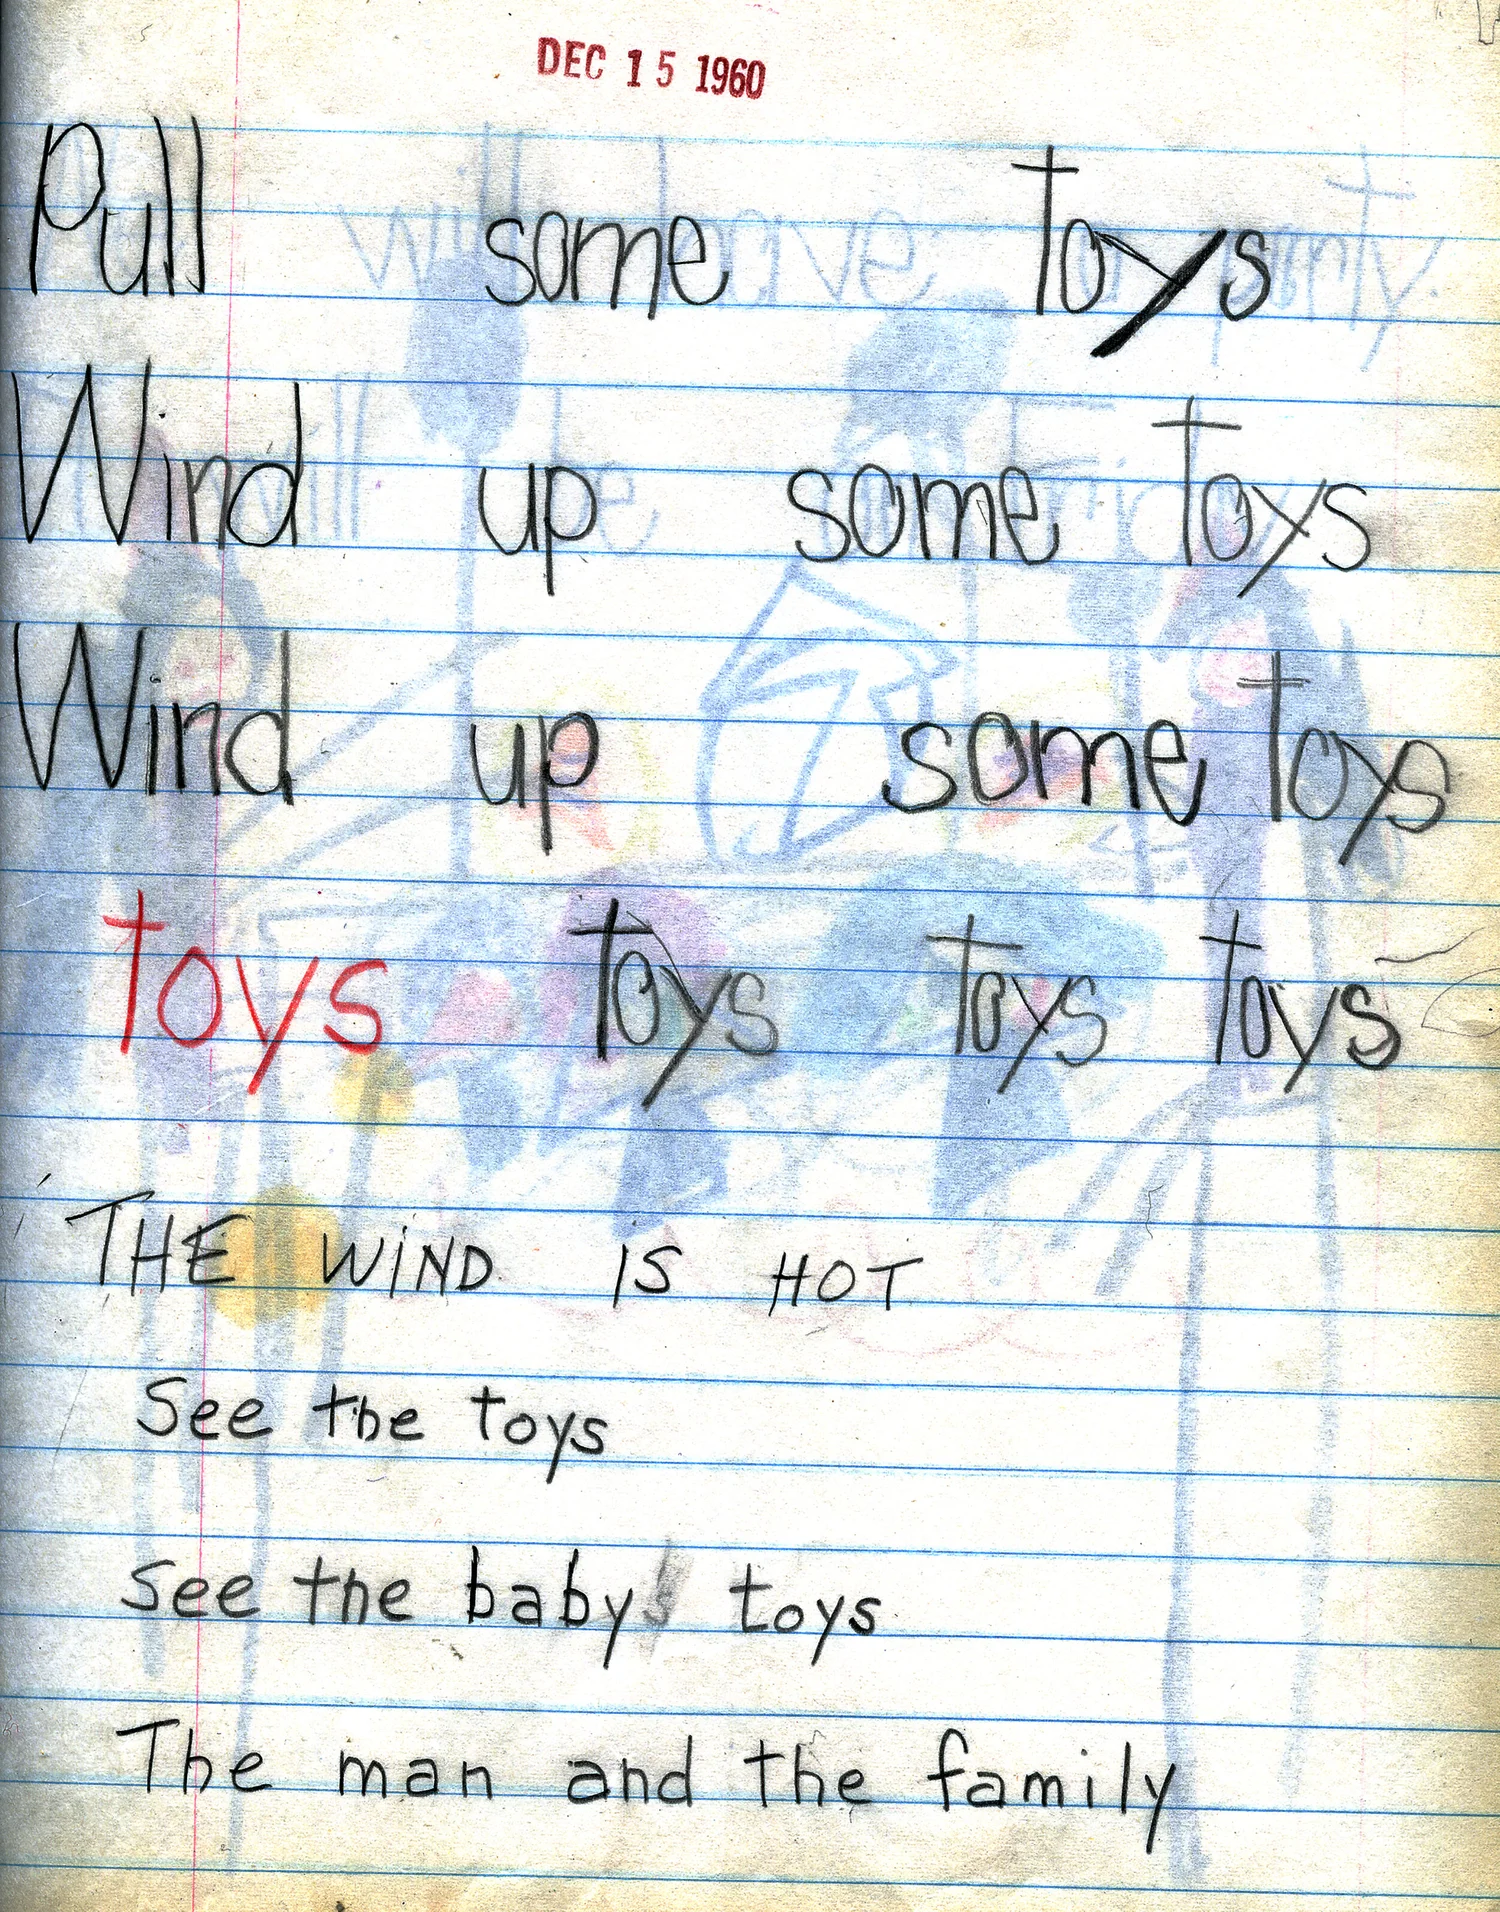 DEC 15 1960
Pull some toys
Wind up some toys
Wind up some toys
toys toys toys toys
THE WIND IS HOT
See the toys
See the babys toys
The man and the family